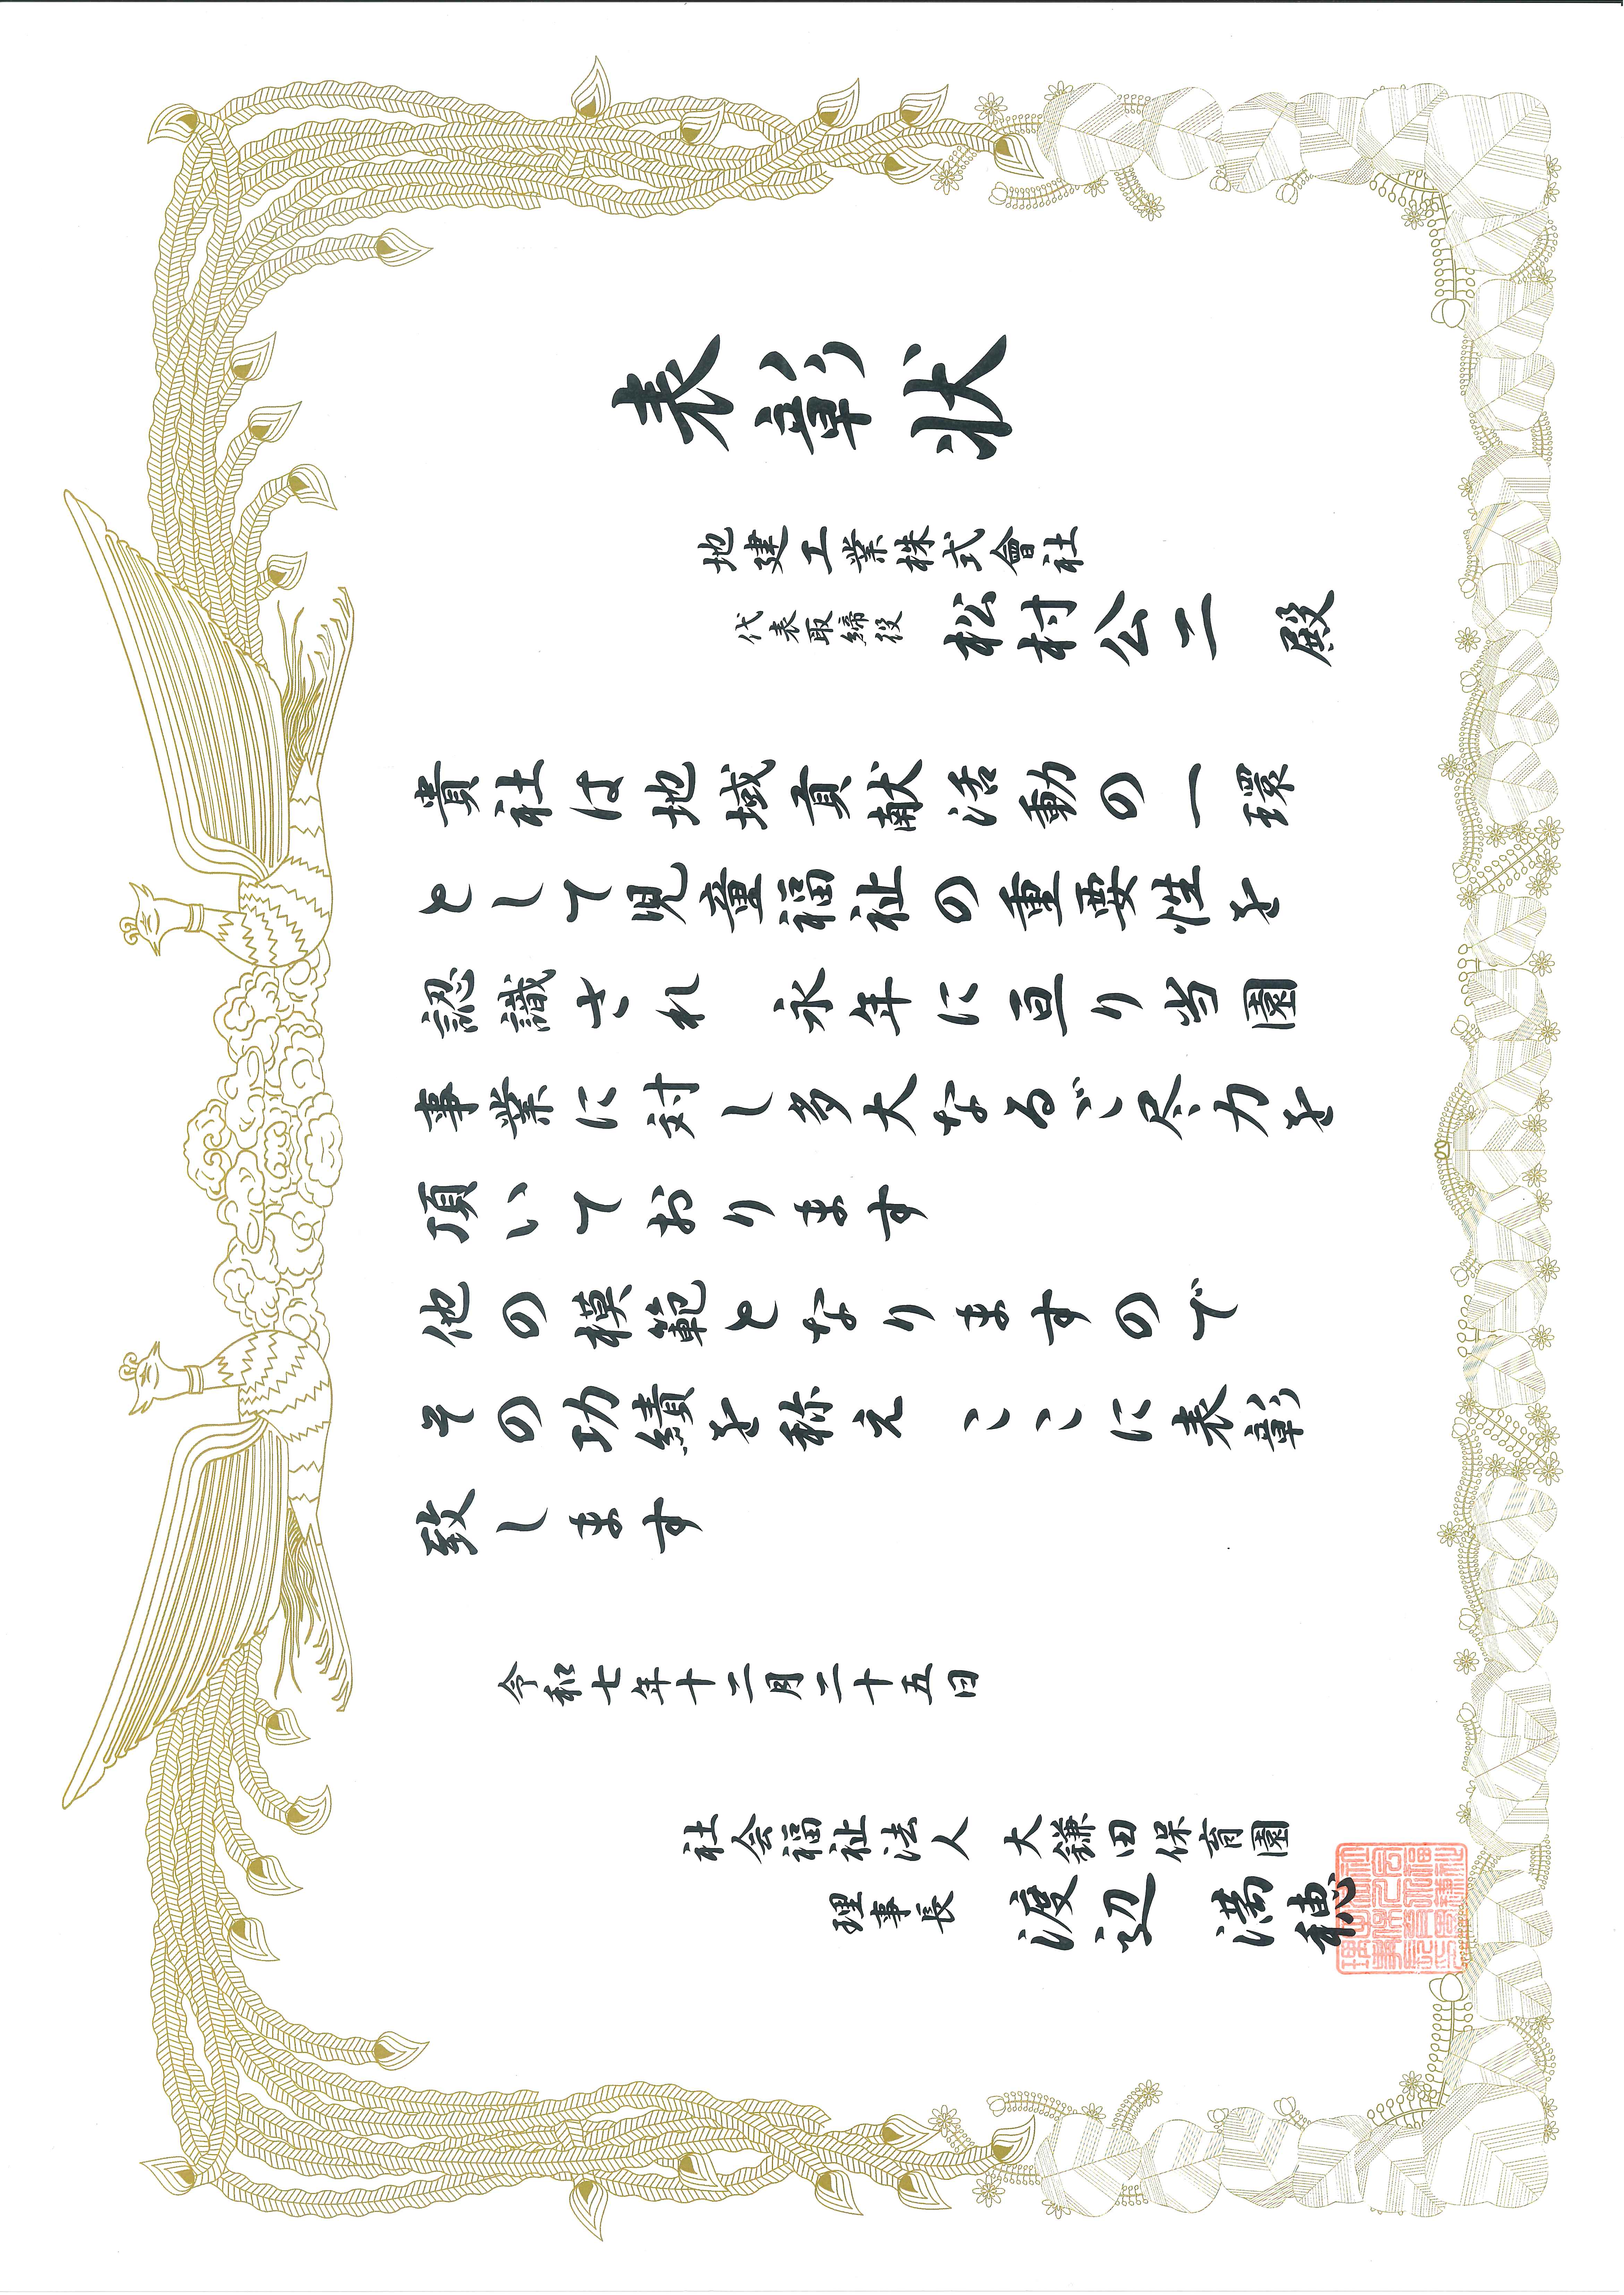 表彰状
地建工業株式會社
代表取締役 松村公二 殿
貴社は地域貢献活動の一環
として児童福祉の重要性を
認識され 永年に亘り当園
事業に対し多大なるご尽力を
頂いております
他の模範となりますので
その功績を称え ここに表彰
致します
令和七年十二月二十五日
社会福祉法人 大鎌田保育園
理事長 渡辺 満穂